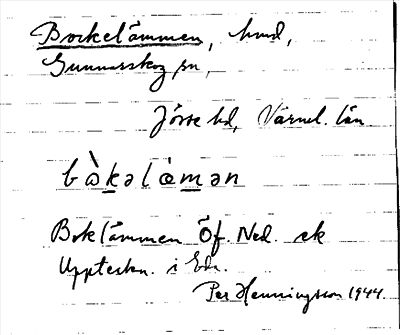 Bockelämmen, hmd,
Gunnarskog sn,
Jösse hd, Värml. län
bὰkəlæmən
Boklämmen Öf. Ned. ek
Uppteckn. i Eda.
Per Henningsson 1944.